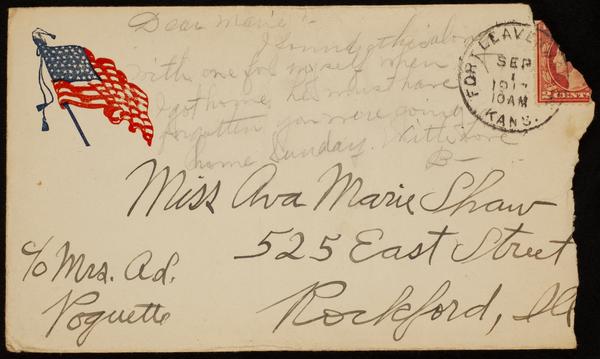 Dear Marie:-
I found this along
with one for myself when
I got home. He must have
forgotten you were going
home Sunday. With love
B-
FORT LEAVEN
SEP
1
1917
10AM
KANS.
2 CENTS
Miss Ava Marie Shaw
525 East Street
Rockford, Ill
c/o Mrs. Ad.
Poquette